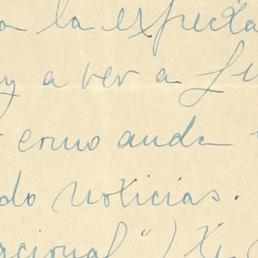 la expecta
y a ver a Lu
como anda
do noticias.
acional")